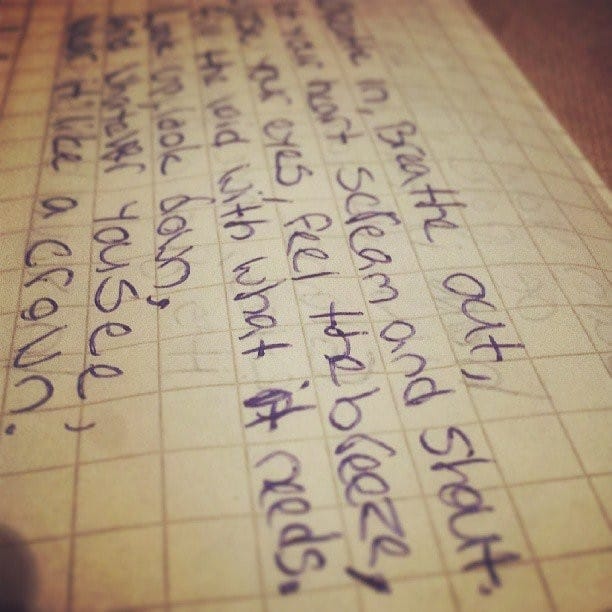 Breathe in, Breathe out,
Let your heart scream and shout.
Close your eyes, Feel the breeze,
Fill the void with what it needs.
Look up, look down,
whatever You See,
Wear it like a crown.